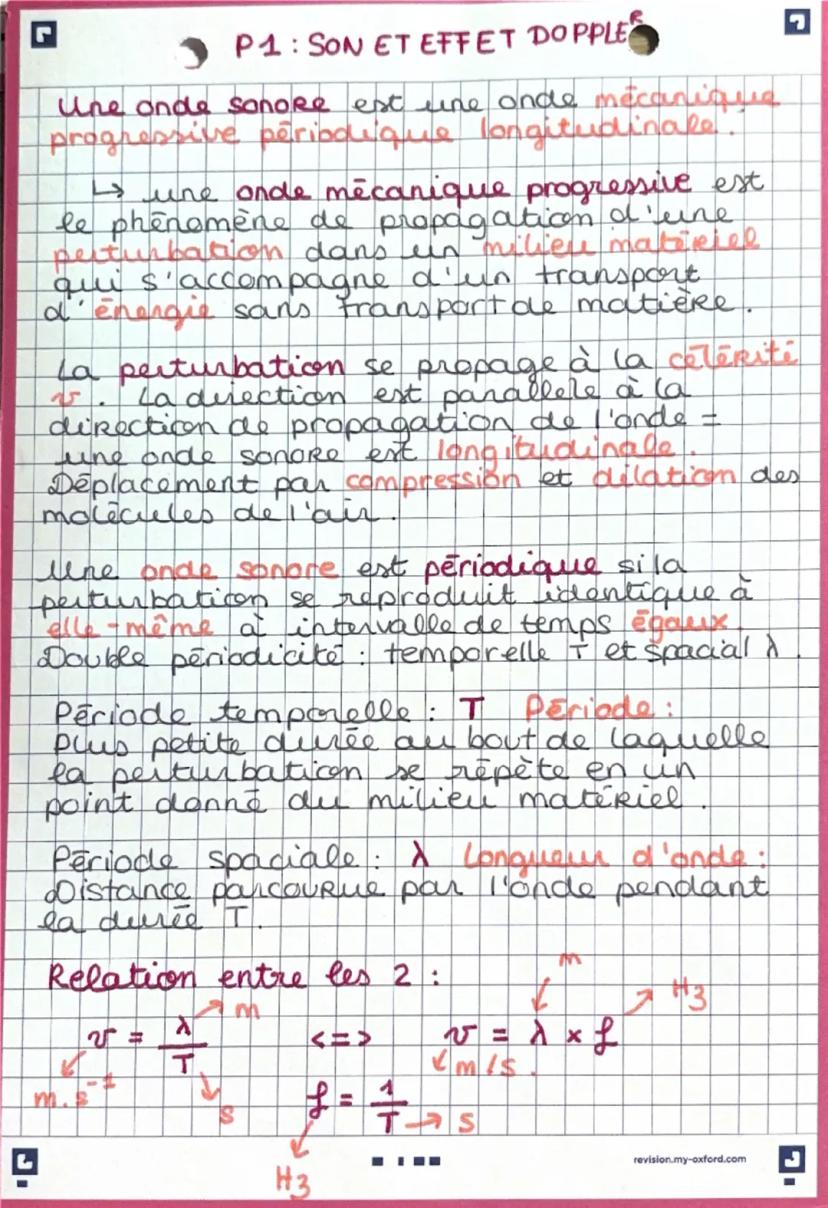 P1 : SON ET EFFET DOPPLER
Une onde sonore est une onde mécanique
progressive périodique longitudinale.
↳ une onde mécanique progressive est
le phénomène de propagation d'une
perturbation dans un milieu matériel
qui s'accompagne d'un transport
d'énergie sans transport de matière.
La perturbation se propage à la célérité
v. La direction est parallele à la
direction de propagation de l'onde =
une onde sonore est longitudinale.
Déplacement par compression et dilation des
molécules de l'air.
Une onde sonore est périodique si la
perturbation se reproduit identique à
elle-même à intervalle de temps égaux.
Double périodicité : temporelle T et spacial λ.
Période temporelle : T Période :
Plus petite durée au bout de laquelle
la perturbation se répète en un
point donné du milieu matériel.
Période spaciale : λ Longueur d'onde :
Distance parcourue par l'onde pendant
la durée T.
Relation entre les 2 :
v = λ/T → m <=> v = λ × f → Hz
m
m.s⁻¹ s m/s.
f = 1/T → s
Hz
revision.my-oxford.com